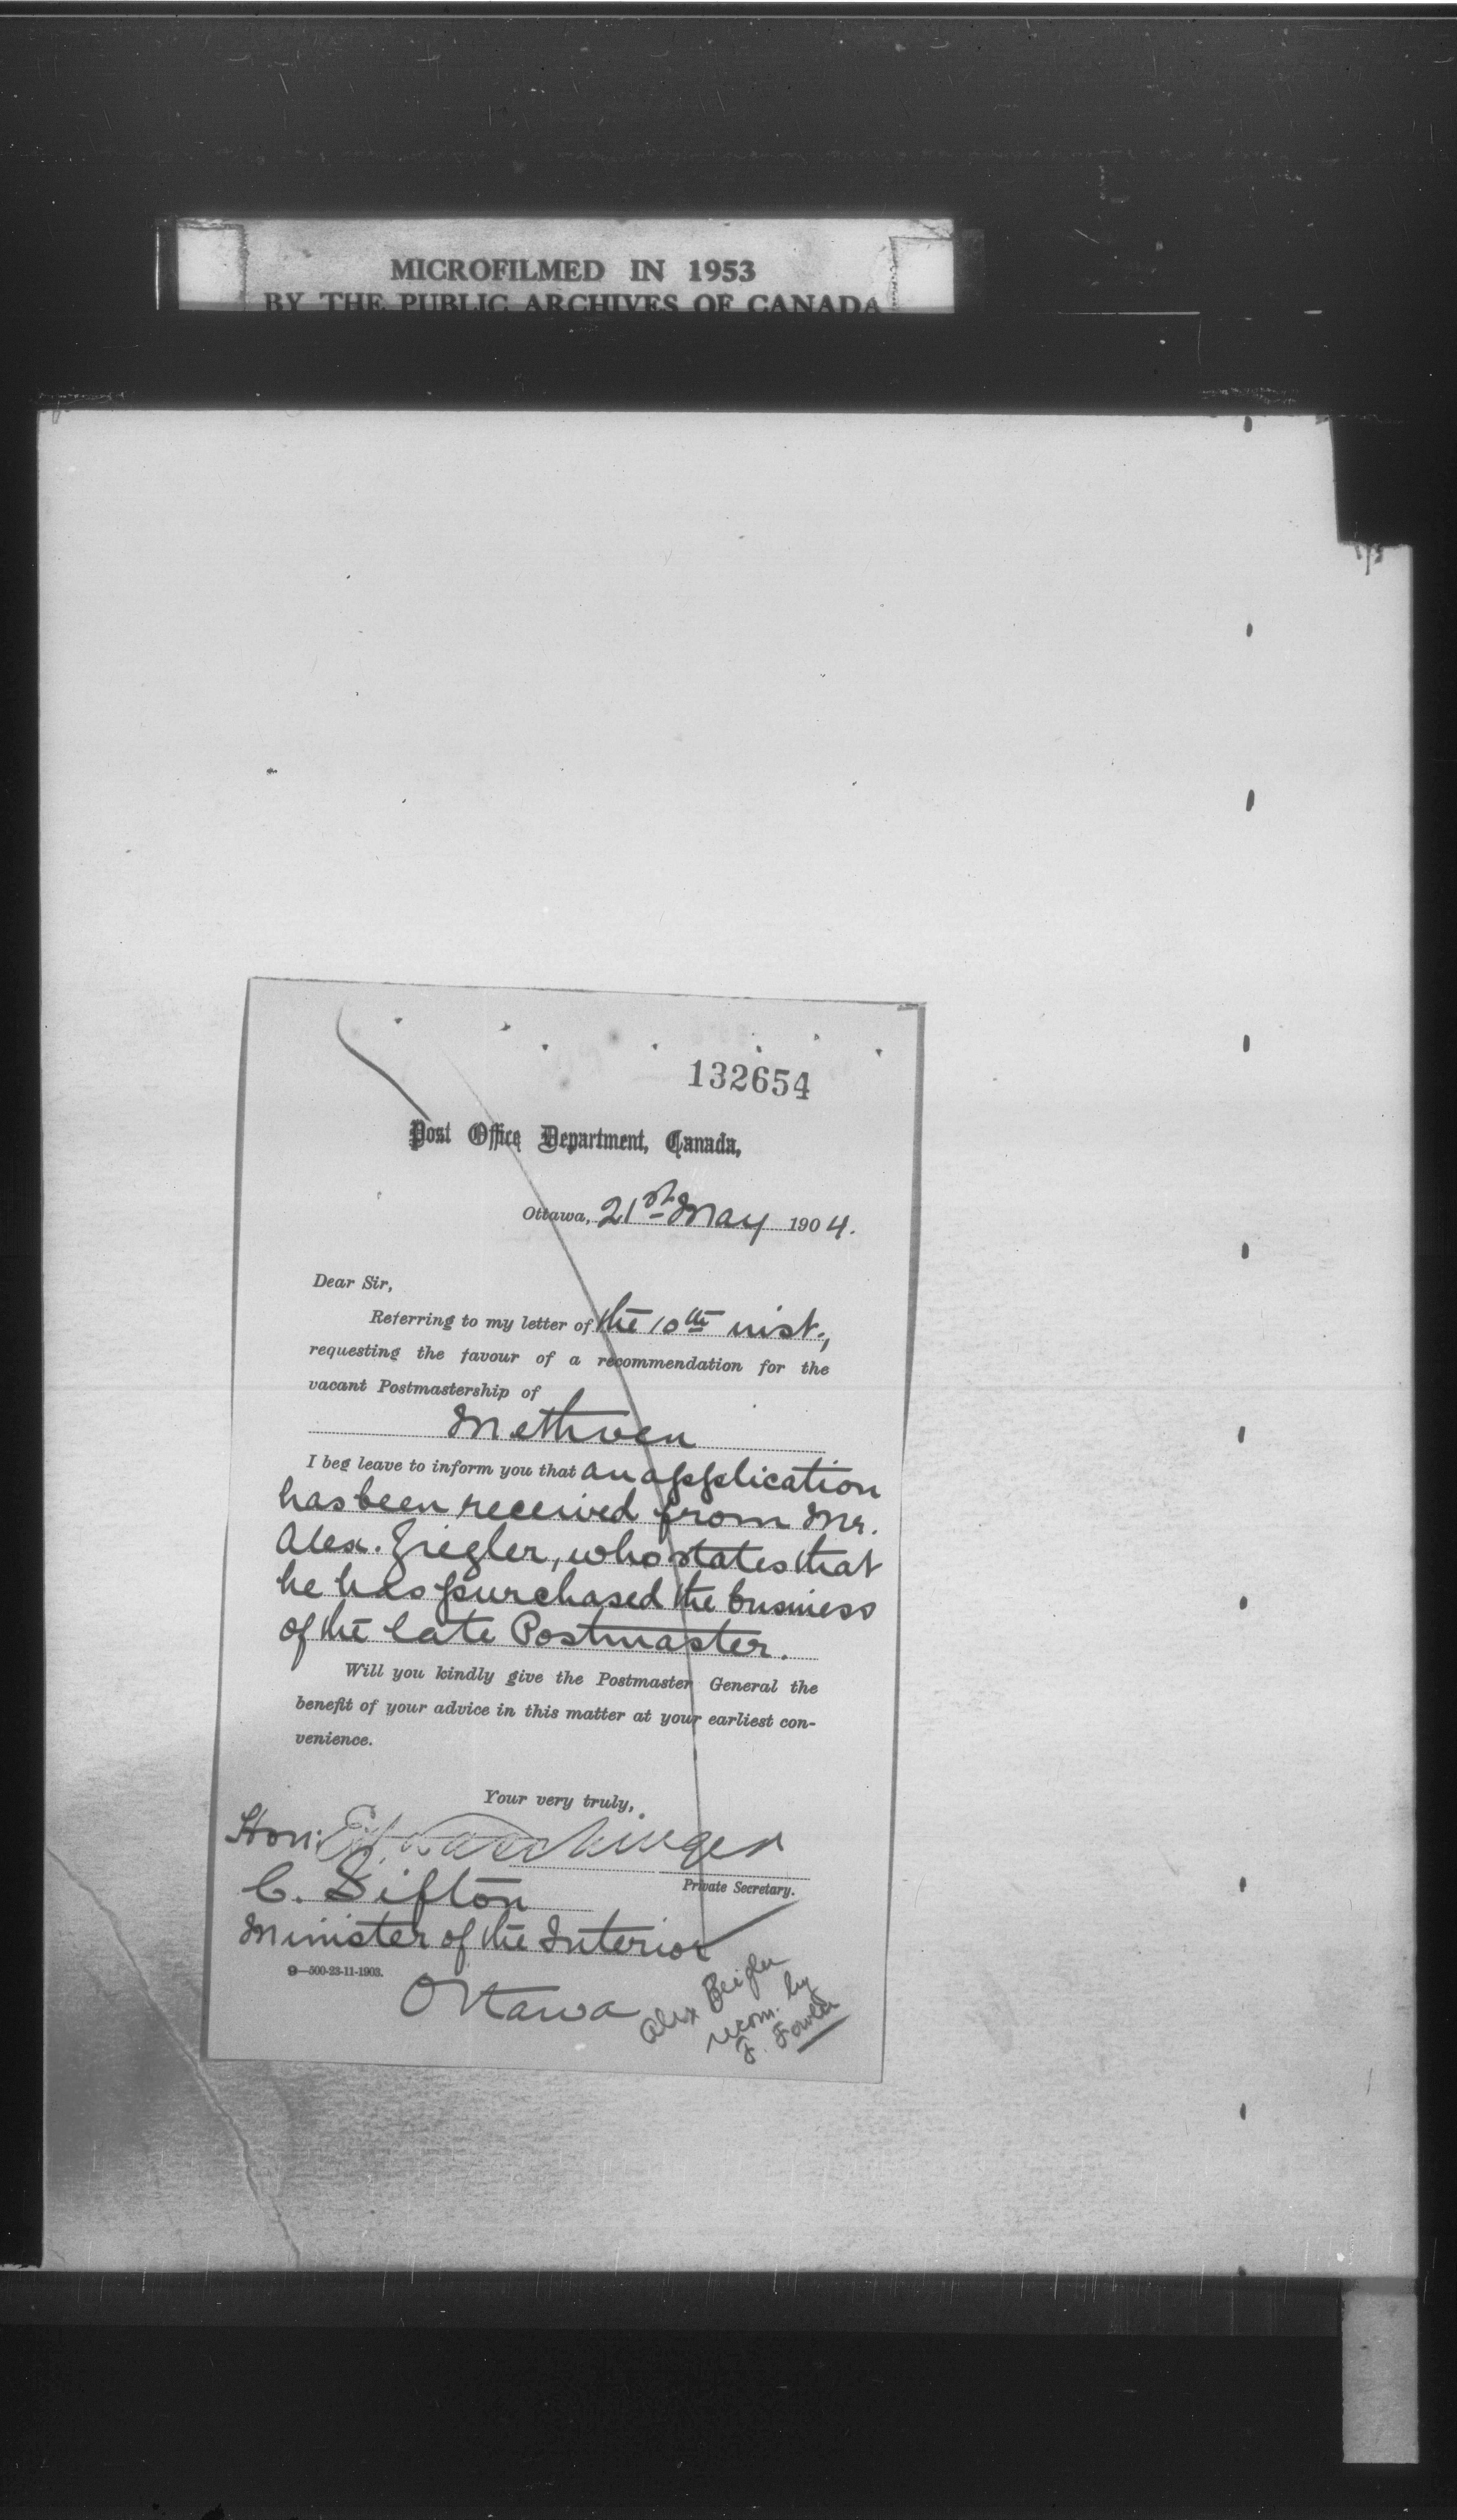 MICROFILMED IN 1953
BY THE PUBLIC ARCHIVES OF CANADA
132654
Post Office Department, Canada,
Ottawa, 21st May 1904.
Dear Sir,
Referring to my letter of the 10th inst.,
requesting the favour of a recommendation for the
vacant Postmastership of
Methven
I beg leave to inform you that an application
has been received from Mr.
Alex. Ziegler, who states that
he has purchased the business
of the late Postmaster.
Will you kindly give the Postmaster General the
benefit of your advice in this matter at your earliest con-
venience.
Your very truly,
Hon:
Private Secretary.
C. Sifton
Minister of the Interior
9—500-23-11-1903.
Ottawa
Alex
recom. by
F. Fowler